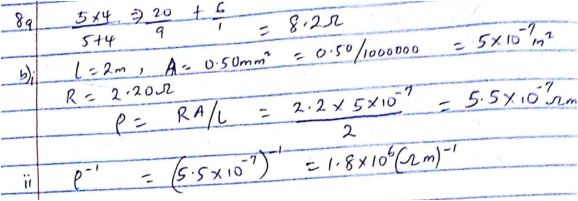 8a 5×4/5+4 ⇒ 20/9 + 6/1 = 8.2Ω
b)i l = 2m , A = 0.50mm² = 0.50/1000000 = 5×10⁻⁷m²
R = 2.20Ω
ρ = RA/L = 2.2 × 5×10⁻⁷/2 = 5.5×10⁻⁷Ωm
ii ρ⁻¹ = (5.5×10⁻⁷)⁻¹ = 1.8×10⁶(Ωm)⁻¹